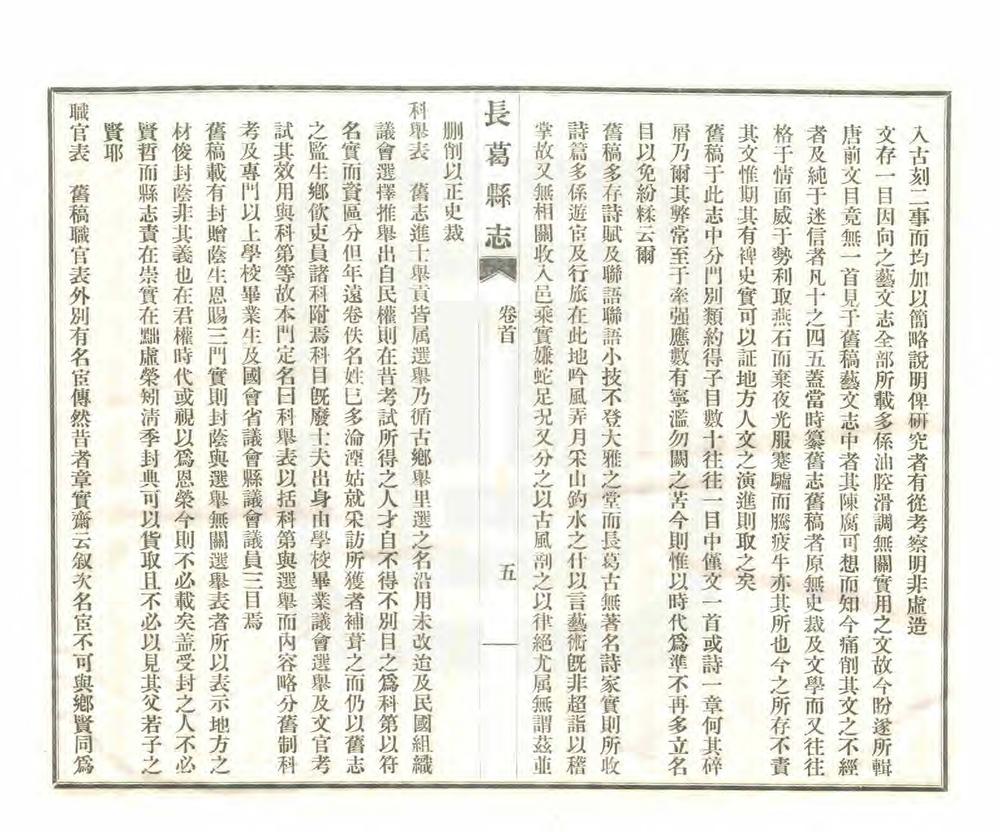 入古刻二事而均加以簡略說明俾研究者有從考察明非虛造
文存一目因向之藝文志全部所載多係油腔滑調無關實用之文故今盼遂所輯
唐前文目竟無一首見于舊稿藝文志中者其陳腐可想而知今痛削其文之不經
者及純于迷信者凡十之四五蓋當時纂舊志舊稿者原無史裁及文學而又往往
格于情面威于勢利取燕石而棄夜光服蹇驢而騰疲牛亦其所也今之所存不責
其文惟期其有裨史實可以証地方人文之演進則取之矣
舊稿于此志中分門別類約得子目數十往往一目中僅文一首或詩一章何其碎
屑乃爾其弊常至于牽强應數有寧濫勿闕之苦今則惟以時代爲準不再多立名
目以免紛糅云爾
舊稿多存詩賦及聯語聯語小技不登大雅之堂而長葛古無著名詩家實則所收
詩篇多係遊宦及行旅在此地吟風弄月采山釣水之什以言藝術旣非超詣以稽
掌故又無相關收入邑乘實嫌蛇足况又分之以古風副之以律絕尤属無謂茲並
長葛縣志
卷首
五
删削以正史裁
科舉表 舊志進士舉貢皆属選舉乃循古鄉舉里選之名沿用未改迨及民國組織
議會選擇推舉出自民權則在昔考試所得之人才自不得不別目之爲科第以符
名實而資區分但年遠卷佚名姓已多淪湮姑就采訪所獲者補葺之而仍以舊志
之監生鄉飲吏員諸科附焉科目旣廢士夫出身由學校畢業議會選舉及文官考
試其效用與科第等故本門定名曰科舉表以括科第與選舉而內容略分舊制科
考及專門以上學校畢業生及國會省議會縣議會議員三目焉
舊稿載有封贈蔭生恩賜三門實則封蔭與選舉無關選舉表者所以表示地方之
材俊封蔭非其義也在君權時代或視以爲恩榮今則不必載矣盖受封之人不必
賢哲而縣志責在崇實在黜虛榮矧淸季封典可以貨取且不必以見其父若子之
賢耶
職官表 舊稿職官表外別有名宦傳然昔者章實齋云叙次名宦不可與鄉賢同爲